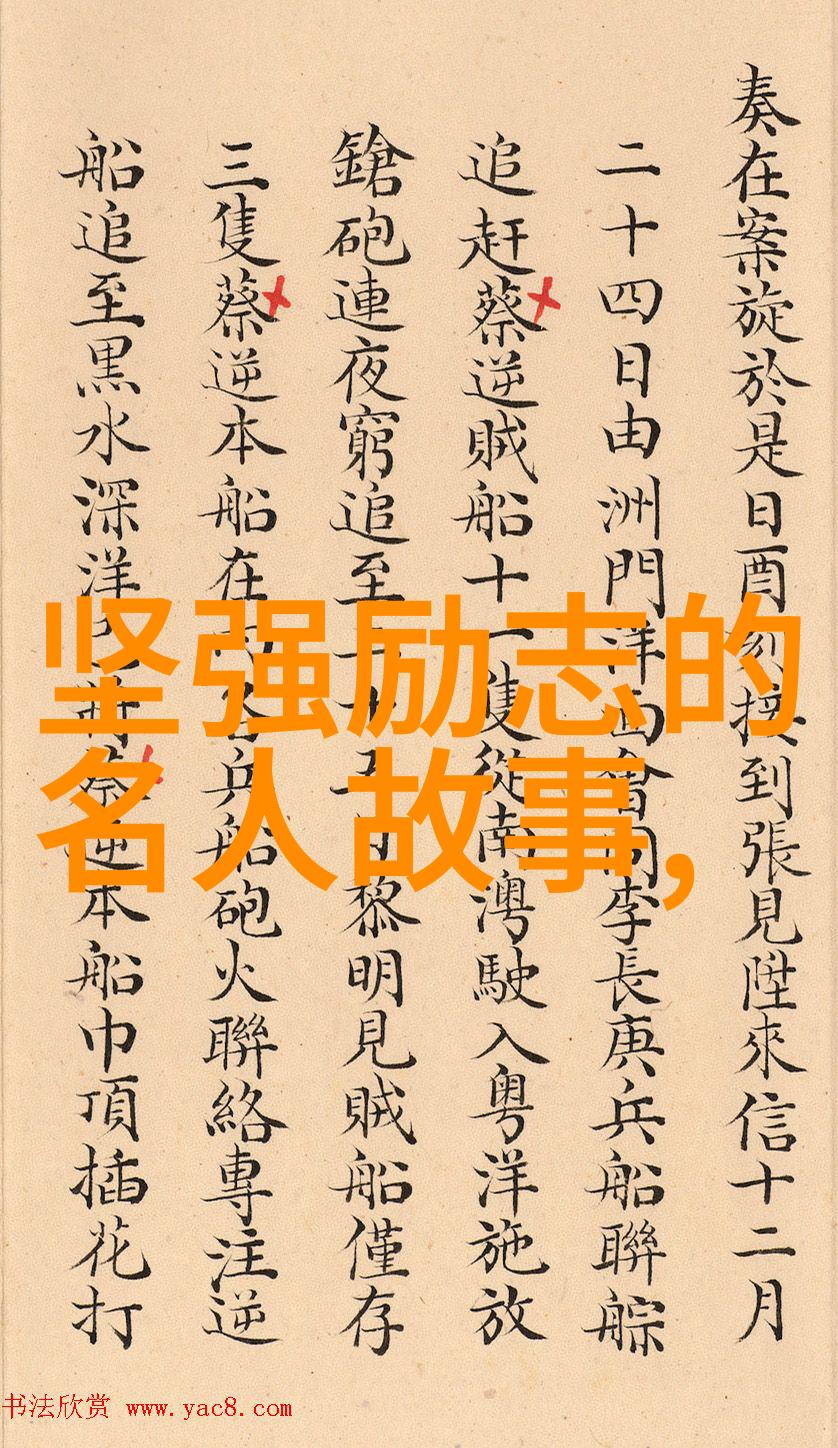 奏在案旋於是日酉刻接到張見陞來信十二月
二十四日由洲門洋面會同李長庚兵船聯䑸
追赶蔡逆賊船十一隻從南澳駛入粤洋施放
鎗砲連夜窮追至二十五日黎明見賊船僅存
三隻蔡逆本船在內各兵船砲火聯絡專注逆
船追至黒水深洋已將蔡逆本船巾頂插花打
坚强励志的
名人故事,
书法欣赏 www.yac8.com